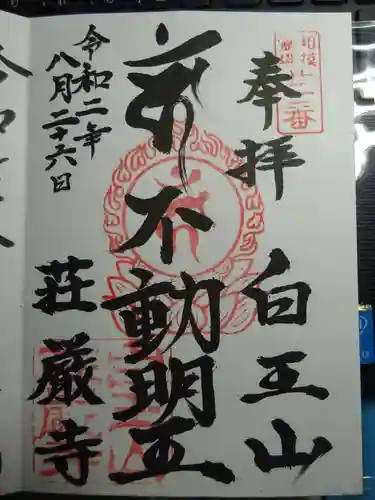 奉拝
白王山
不動明王
令和二年
八月二十六日
荘厳寺